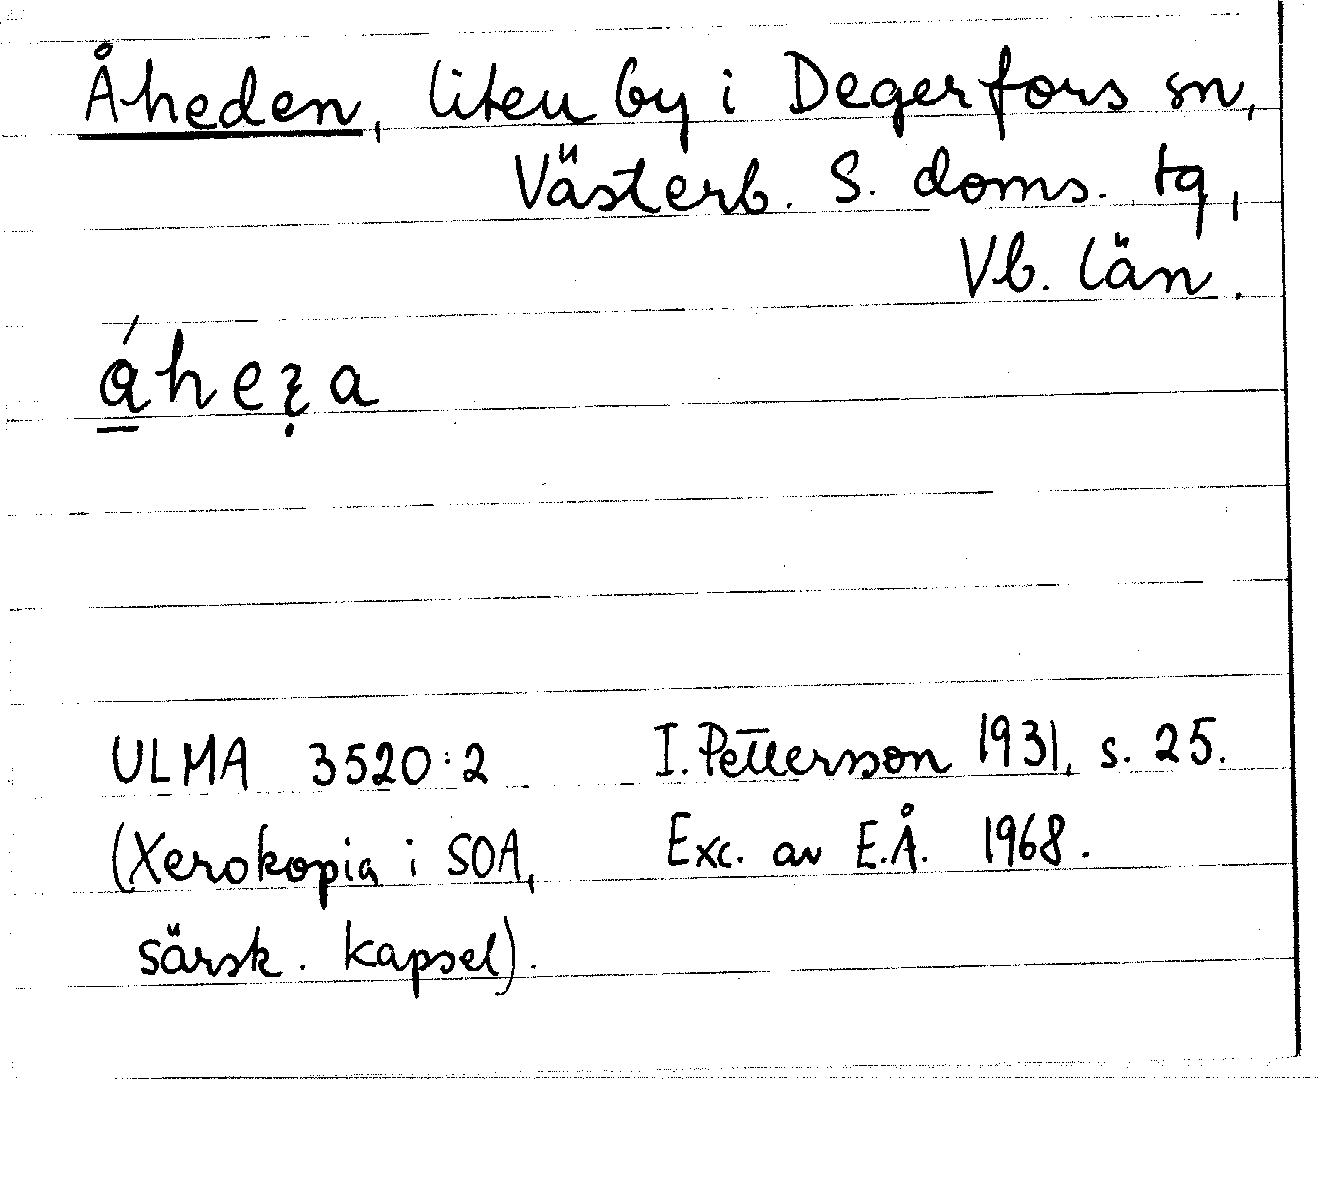 Åheden, liten by i Degerfors sn,
Västerb. S. doms. tg,
Vb. län.
ULMA 3520:2 I. Pettersson 1931, s. 25.
(Xerokopia i SOA, Exc. av E.Å. 1968.
särsk. kapsel).